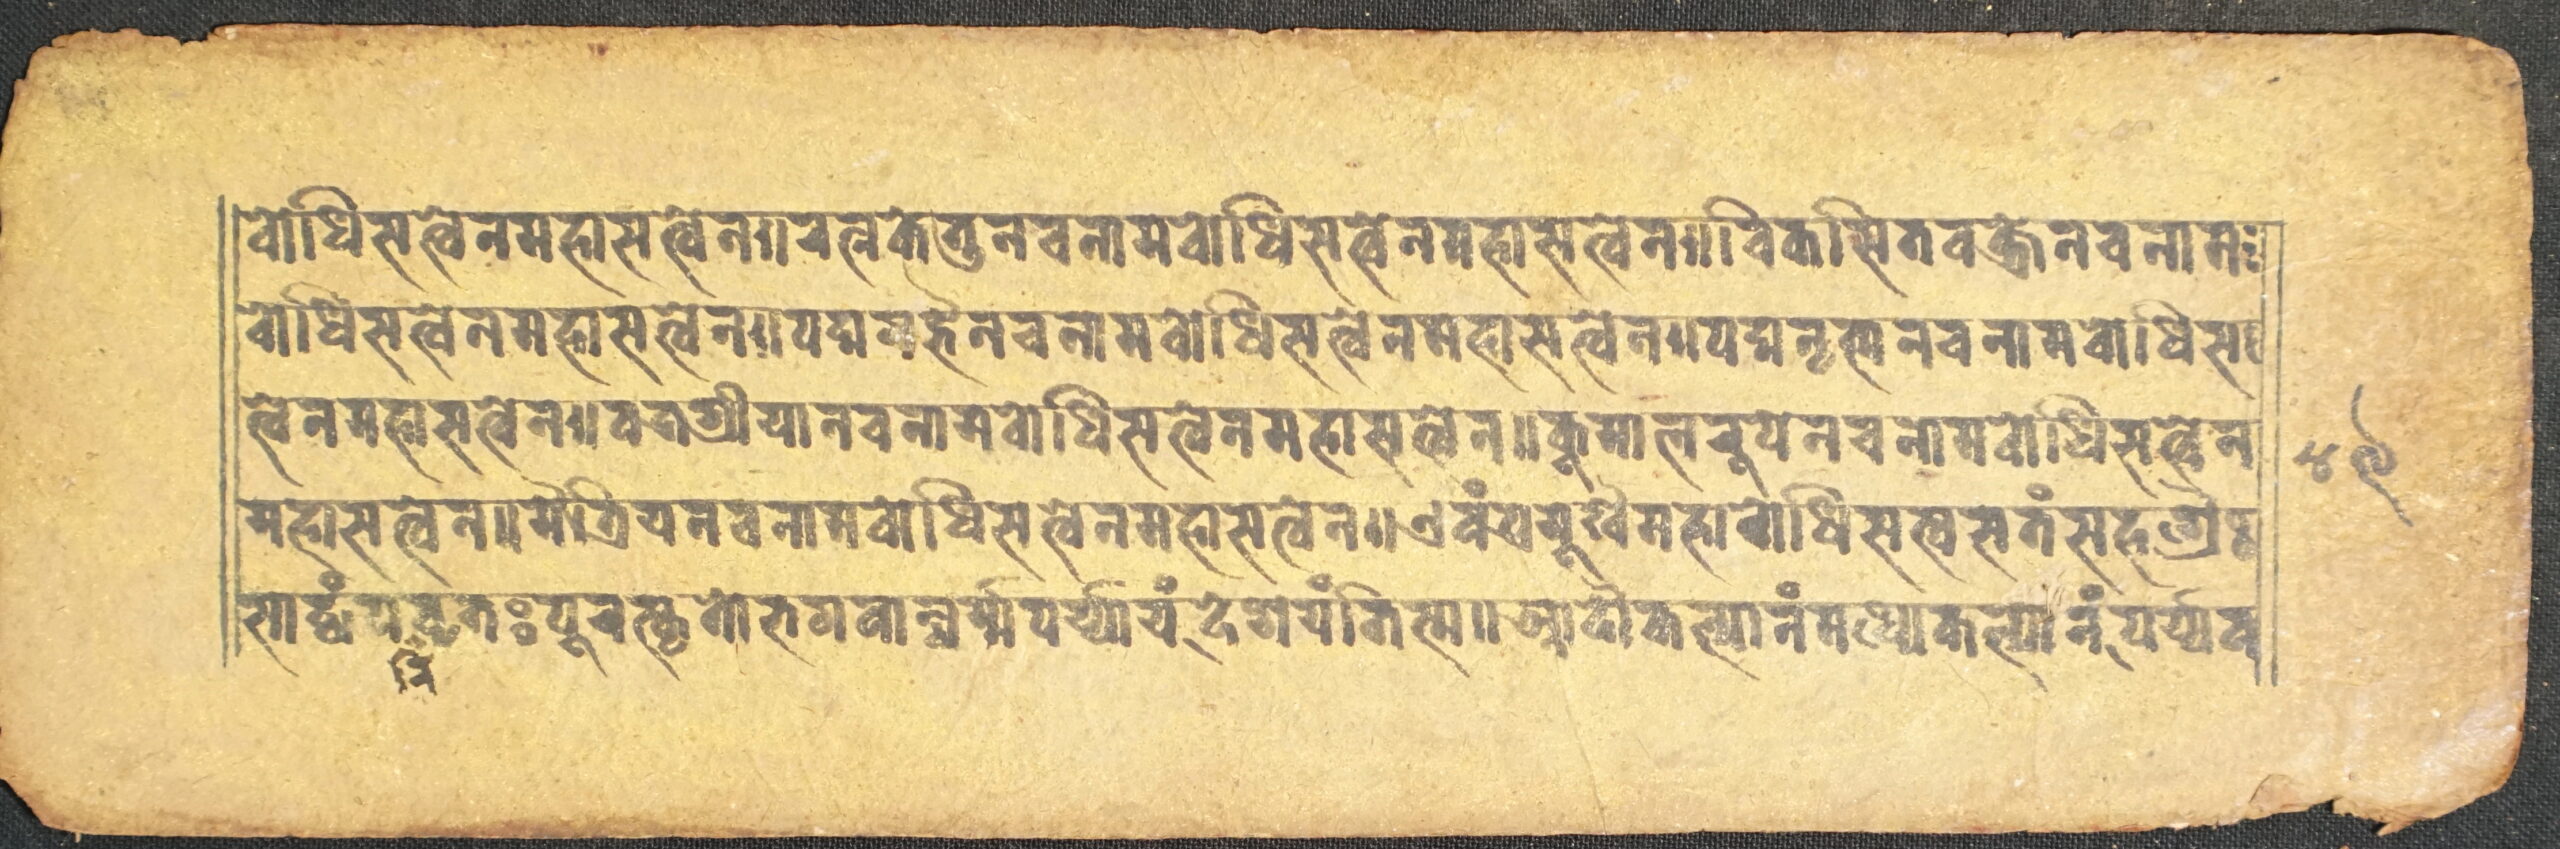 बोधिसत्वेनमहासत्वेन॥रत्नकेतुनचनामबोधिसत्वेनमहासत्वेन॥विकसितवक्त्रेनचनामः
बोधिसत्वेनमहासत्वेन॥पद्मगर्भेनचनामबोधिसत्वेनमहासत्वेन॥पद्मनेत्रानचनामबोधिस
त्वेनमहासत्वेन॥वज्रश्रीयानचनामबोधिसत्वेनमहासत्वेन॥कुमालरुपेनचनामबोधिसत्वेन
महासत्वेन॥मैत्रियनचनामबोधिसत्वेनमहासत्वेन॥एवंप्रमूखैमहाबोधिसत्वसतंसहश्रै
सार्द्धंपवृतःपूरस्कृतोभगवान्धर्म्मपर्य्यायंदेशयंतिस्म॥आदौकल्यानंमध्येकल्यानंपर्य्यव
रि
४९